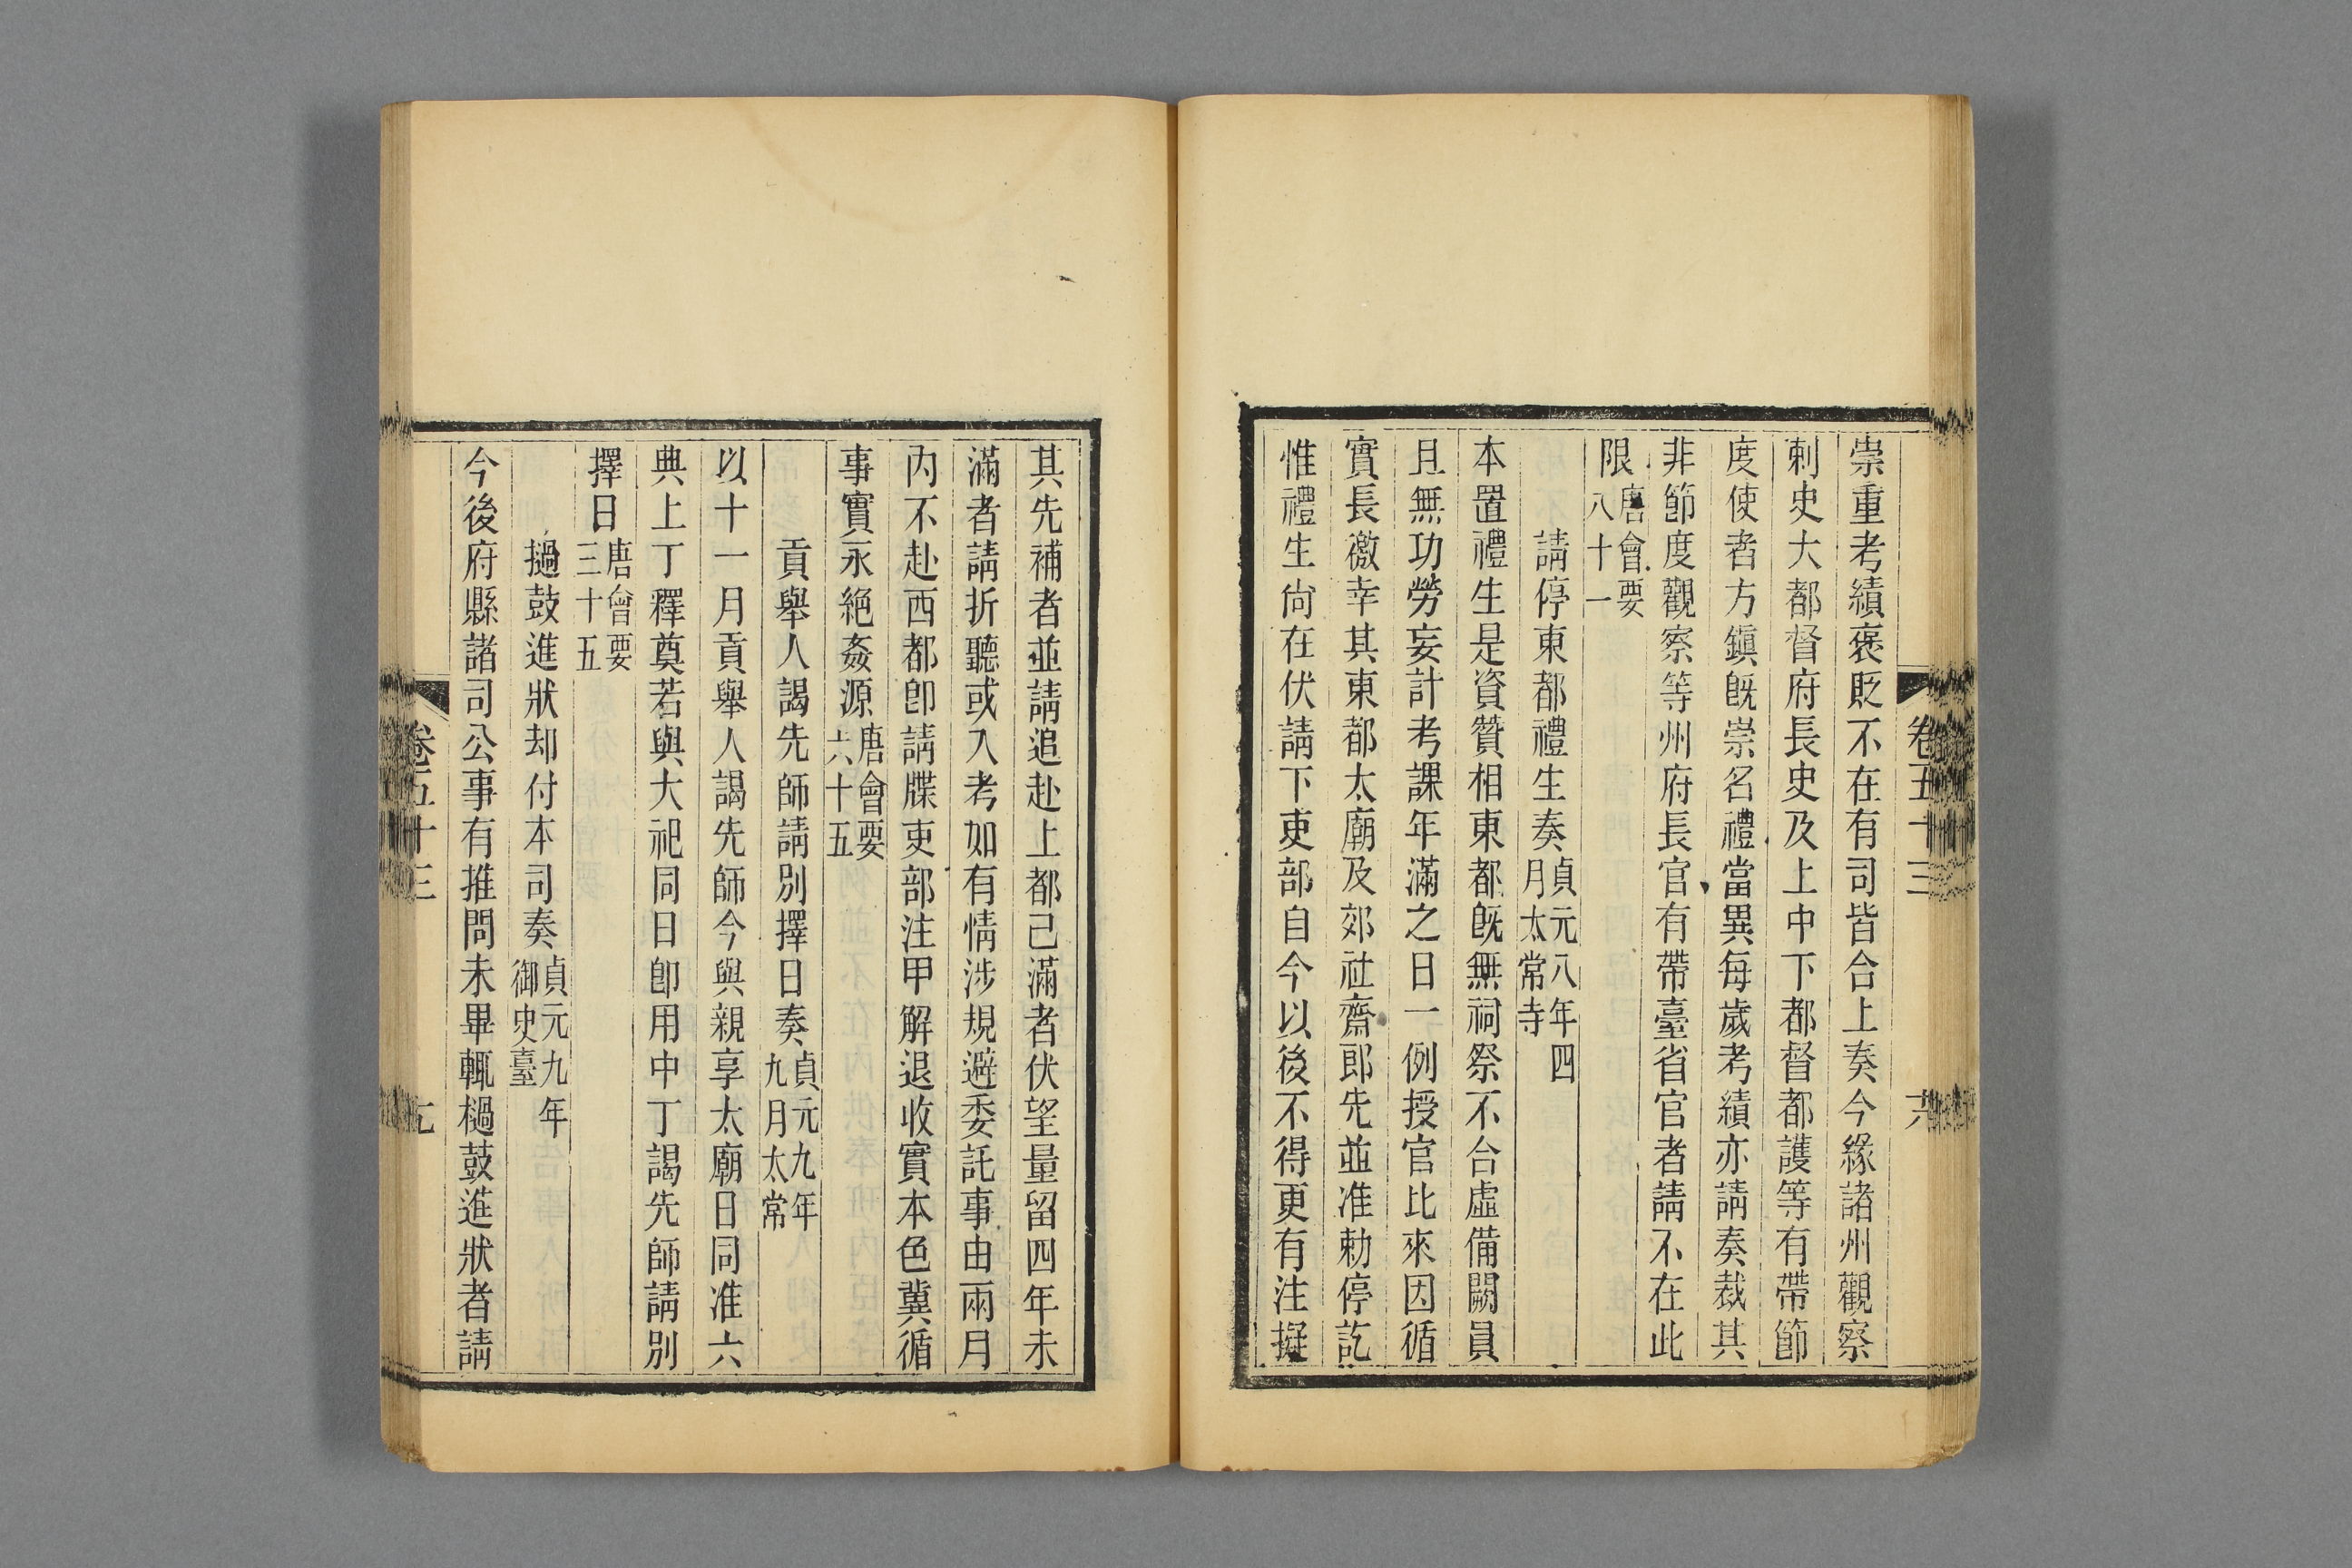 崇重考績褒貶不在有司皆合上奏今緣諸州觀察
刺史大都督府長史及上中下都督都護等有帶節
度使者方鎭旣崇名禮當異每歲考績亦請奏裁其
非節度觀察等州府長官有帶臺省官者請不在此
限唐會要八十一
請停東都禮生奏貞元八年四月太常寺
本置禮生是資贊相東都旣無祠祭不合虛備闕員
且無功勞妄計考課年滿之日一例授官比來因循
實長徼幸其東都太廟及郊社齋郎先並准勅停訖
惟禮生尙在伏請下吏部自今以後不得更有注擬
卷五十三
其先補者並請追赴上都已滿者伏望量留四年未
滿者請折聽或入考如有情涉規避委託事由兩月
內不赴西都卽請牒吏部注甲解退收實本色冀循
事實永絕姦源唐會要六十五
貢舉人謁先師請別擇日奏貞元九年九月太常
以十一月貢舉人謁先師今與親享太廟日同准六
典上丁釋奠若與大祀同日卽用中丁謁先師請別
擇日唐會要三十五
撾鼓進狀却付本司奏貞元九年御史臺
今後府縣諸司公事有推問未畢輒檛鼓進狀者請
卷五十三